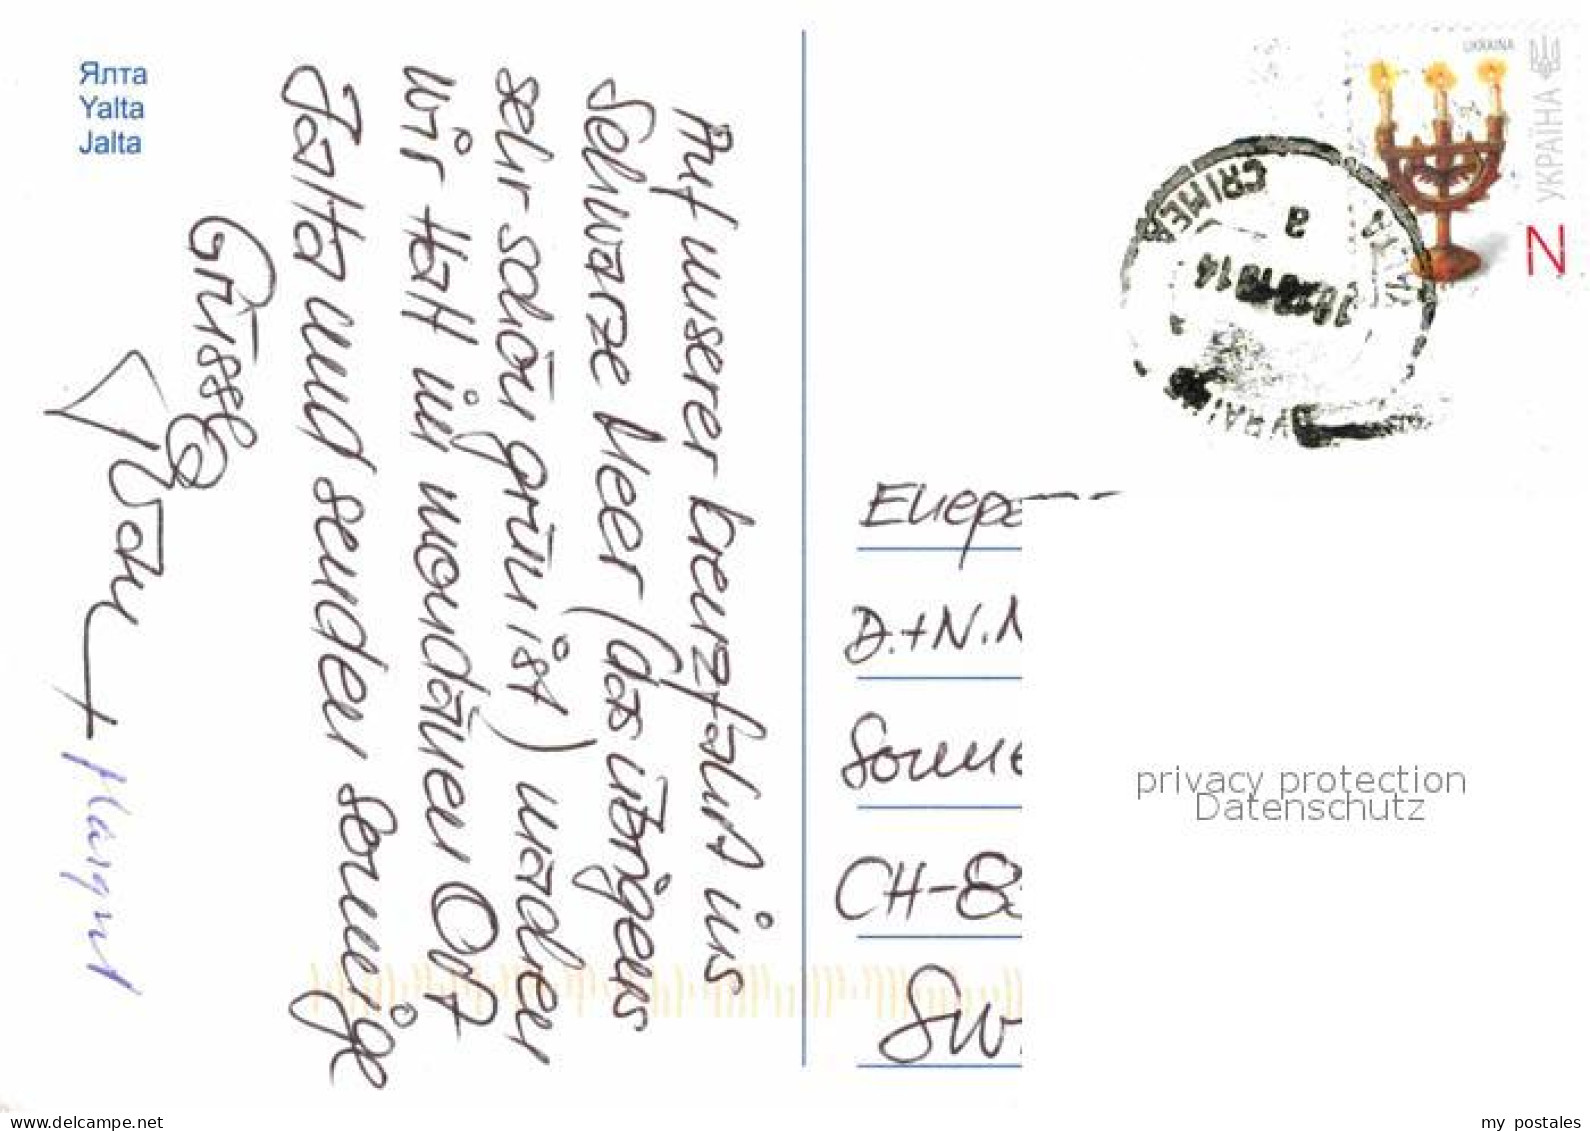 Ялта
Yalta
Jalta
Auf unserer Kreuzfahrt ins
Schwarze Meer (das übrigens
sehr schön grün ist) machen
wir Halt im mondänen Ort
Jalta und senden sonnige
Grüsse
+ Margrit
UKRAINA
УКРАЇНА
N
CRIMEA
a
D.+N.
CH-8
privacy protection
Datenschutz
my postales